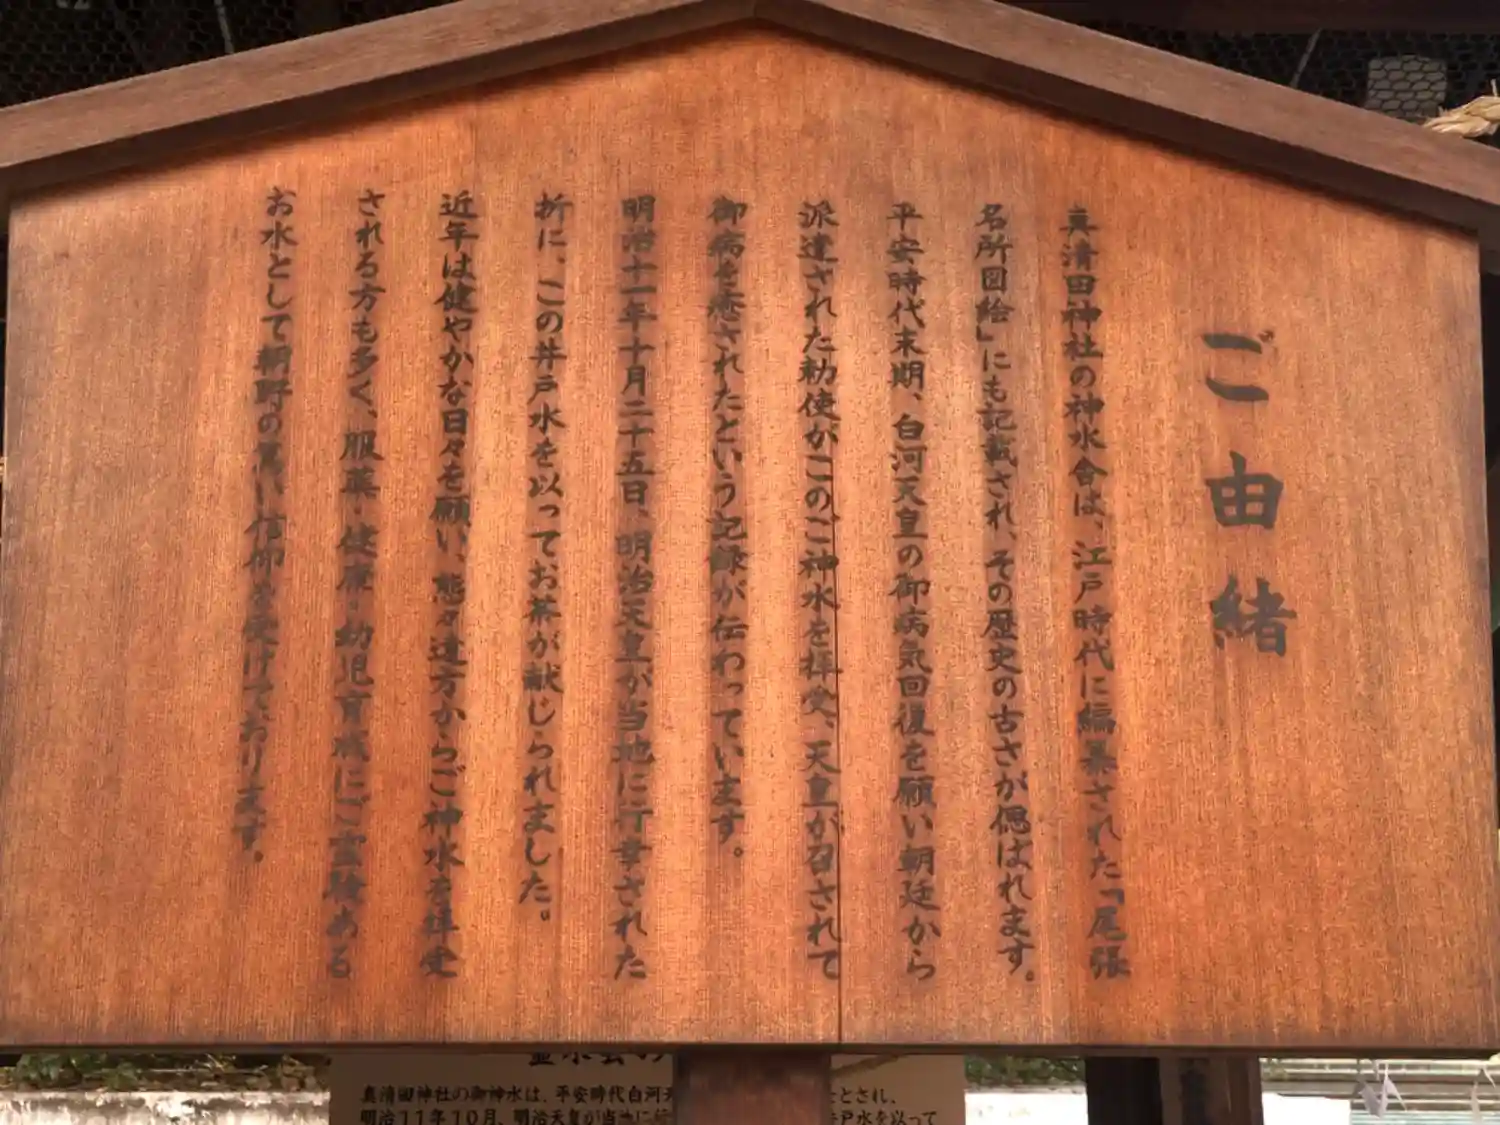 ご由緒
真清田神社の神水舎は、江戸時代に編纂された「尾張
名所図絵」にも記載され、その歴史の古さが偲ばれます。
平安時代末期、白河天皇の御病気回復を願い朝廷から
派遣された勅使がこのご神水を拝受、天皇が召されて
御病を癒されたという記録が伝わっています。
明治十一年十月二十五日、明治天皇が当地に行幸された
折に、この井戸水を以ってお茶が献じられました。
近年は健やかな日々を願い、態々遠方からご神水を拝受
される方も多く、服薬・健康・幼児育成にご霊験ある
お水として朝野の篤い信仰を受けております。
真清田神社の御神水は、平安時代白河天
とされ、
明治11年10月、明治天皇が当地に行
戸水を以って